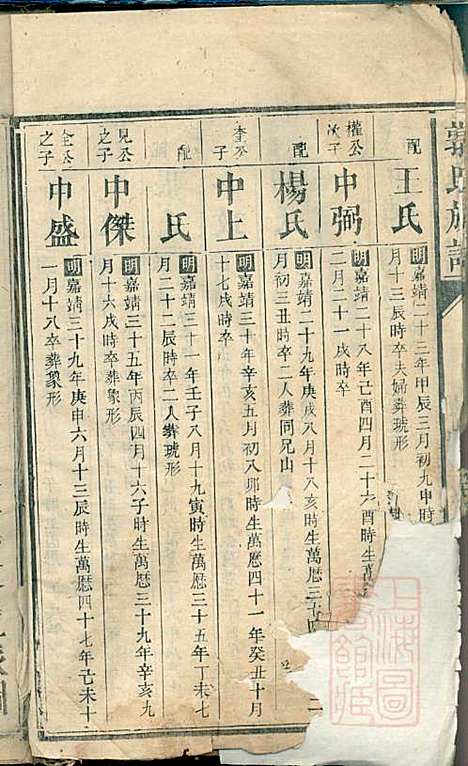 郭氏族譜
配
王氏
明嘉靖二十三年甲辰三月初九申時
月十三辰時卒夫婦葬琥形
權公
次子
中弼
明嘉靖二十八年己酉四月二十六酉時生萬
二月二十一戌時卒
配
楊氏
明嘉靖二十九年庚戌八月十八亥時生萬曆三十四
月初三丑時卒二人葬同兄山
李公
子
中上
明嘉靖三十年辛亥五月初八卯時生萬曆四十一年癸丑十月
十七戌時卒
配
氏
明嘉靖三十一年壬子八月十九寅時生萬曆三十五年丁未七
月二十二辰時卒二人葬琥形
見公
之子
中傑
明嘉靖三十五年丙辰四月十六子時生萬曆三十九年辛亥九
月十六戌時卒葬象形
全公
之子
中盛
明嘉靖三十九年庚申六月十三辰時生萬曆四十七年己未十
一月十八卒葬象形
二
上海圖
書館藏